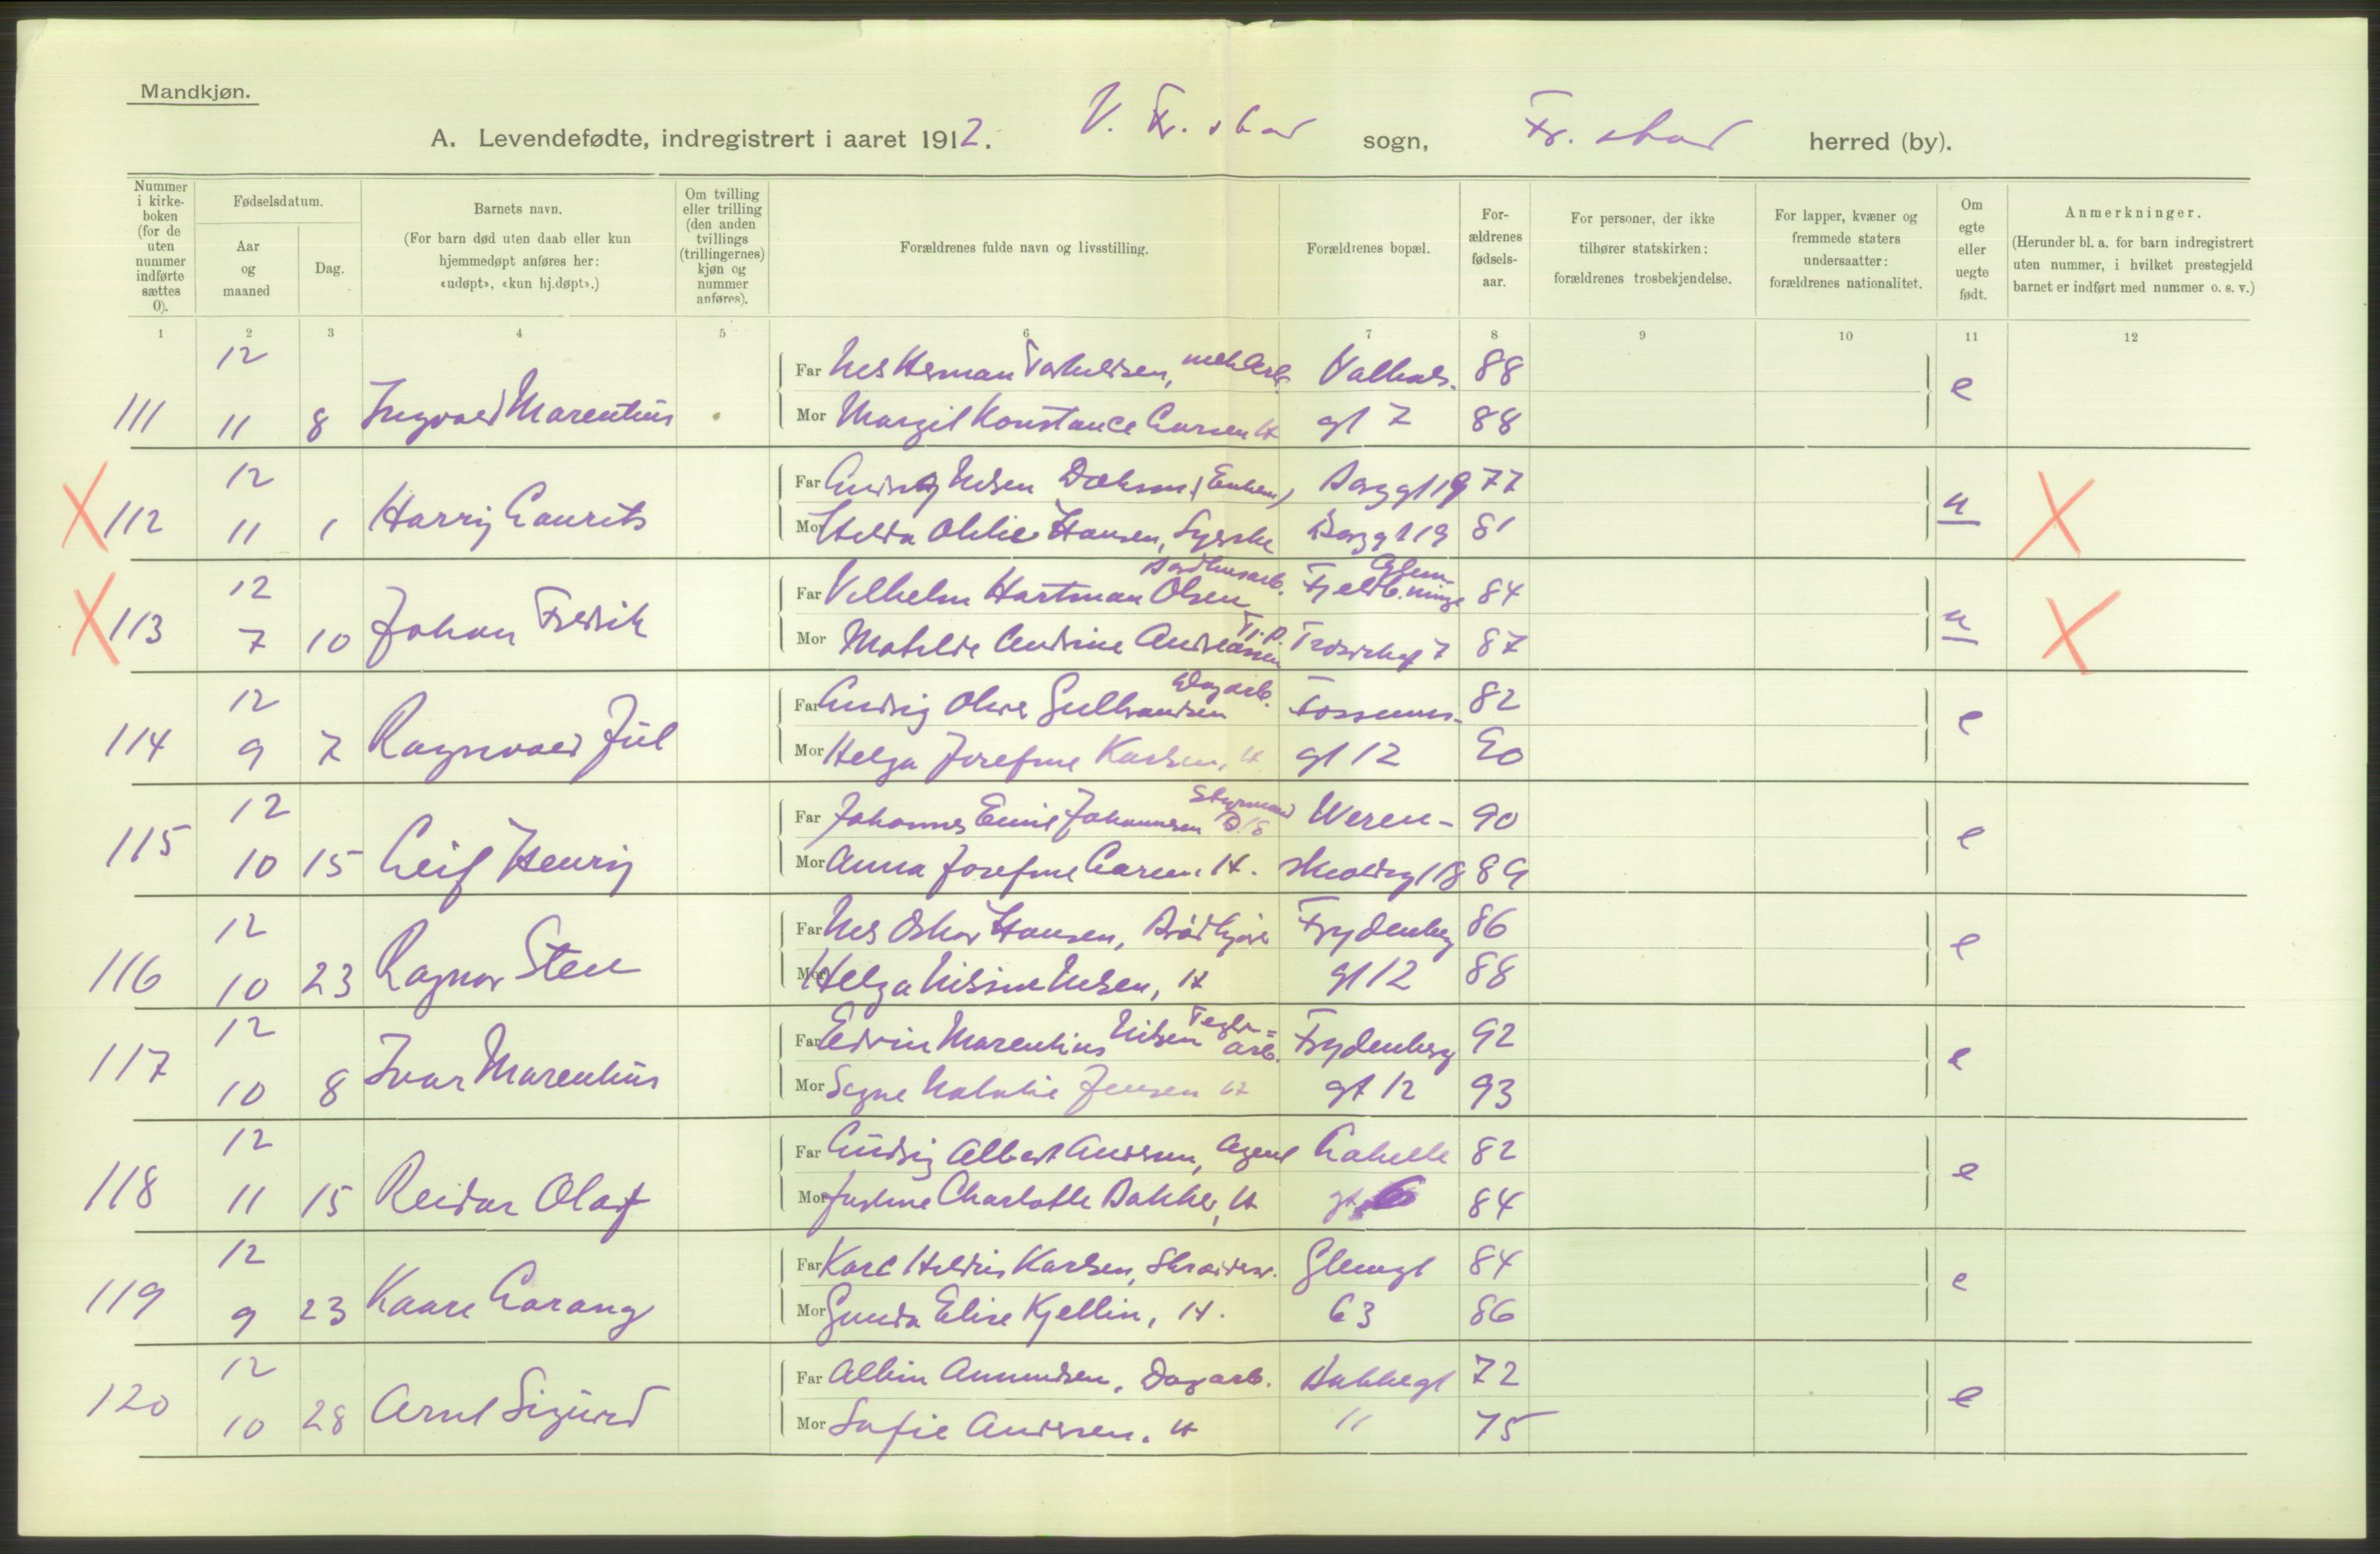 Mandkjøn.
A. Levendefødte, indregistrert i aaret 1912. V. Fr.stad sogn, Fr. stad herred (by).
Nummer i kirkeboken (for de uten nummer indførte sættes 0).
Fødselsdatum.
Aar og maaned
Dag.
Barnets navn.
(For barn død uten daab eller kun hjemmedøpt anføres her: «udøpt», «kun hj.døpt».)
Om tvilling eller trilling (den anden tvillings (trillingernes) kjøn og nummer anføres).
Forældrenes fulde navn og livsstilling.
Forældrenes bopæl.
Forældrenes fødselsaar.
For personer, der ikke tilhører statskirken: forældrenes trosbekjendelse.
For lapper, kvæner og fremmede staters undersaatter: forældrenes nationalitet.
Om egte eller uegte født.
Anmerkninger.
(Herunder bl. a. for barn indregistrert uten nummer, i hvilket prestegjeld barnet er indført med nummer o. s. v.)
1 2 3 4 5 6 7 8 9 10 11 12
12 Far Nils Herman 88
111 11 8 Ingvald Marentius Mor Margit Konstance Larsen H gt 7 88 e
12 Far Ludvig Nilsen 77
112 11 1 Harry Laurits Mor Hilda Otilie Hansen, Syerske Berggt 19 81 u
12 Far Vilhelm Hartman Olsen 84
113 7 10 Johan Fredrik Mor Matilde Andrine Andreassen Tj.p. 87 u
12 Far Ludvig Oliver Gulbrandsen Dagarb. Fossums- 82
114 9 7 Ragnvald Jul Mor Helga Josefine Karlsen, H gt 12 90 e
12 Far Johannes Emil Johannesen Styrmand D/S Weren- 90
115 10 15 Leif Henry Mor Anna Josefine Larsen H. skioldsgt 18 89 e
12 Far Nils Oskar Hansen, Brødkjører Frydenberg 86
116 10 23 Ragnar Sten Mor Helga Nilsine Nilsen, H gt 12 88 e
12 Far Edvin Marentius Nilsen Teglv= arb. Frydenberg 92
117 10 8 Ivar Marentius Mor Signe Natalie Jensen H gt 12 93 e
12 Far Ludvig Albert Andersen, Agent Cahelle 82
118 11 15 Reidar Olaf Mor Justine Charlotte Bakke, H gt 6 84 e
12 Far Karl Hildris Karlsen, Glemgt 84
119 9 23 Kaare Garang Mor Gunda Elise Kjellin, H. 63 86 e
12 Far Albin Amundsen, Dagarb. Bakkegt 72
120 10 28 Arnt Sigurd Mor Sofie Andersen, H " 75 e